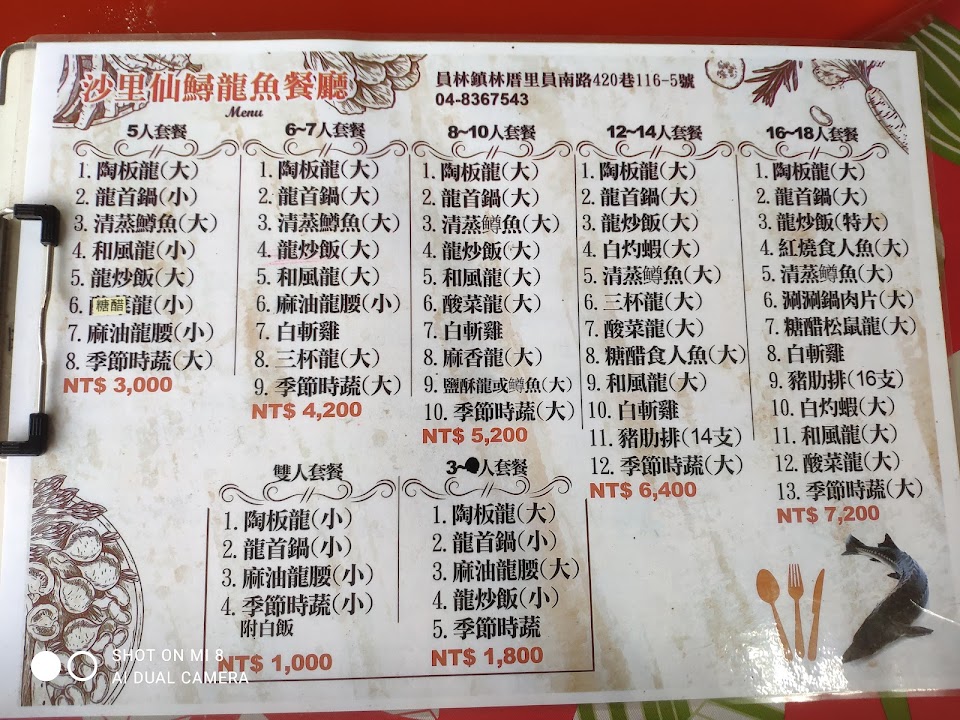 沙里仙鱘龍魚餐廳
Menu
員林鎮林厝里員南路420巷116-5號
04-8367543
5人套餐
1. 陶板龍(大)
2. 龍首鍋(小)
3. 清蒸鱒魚(大)
4. 和風龍(小)
5. 龍炒飯(大)
6. 糖醋龍(小)
7. 麻油龍腰(小)
8. 季節時蔬(大)
NT$ 3,000
6~7人套餐
1. 陶板龍(大)
2. 龍首鍋(大)
3. 清蒸鱒魚(大)
4. 龍炒飯(大)
5. 和風龍(大)
6. 麻油龍腰(小)
7. 白斬雞
8. 三杯龍(大)
9. 季節時蔬(大)
NT$ 4,200
8~10人套餐
1. 陶板龍(大)
2. 龍首鍋(大)
3. 清蒸鱒魚(大)
4. 龍炒飯(大)
5. 和風龍(大)
6. 酸菜龍(大)
7. 白斬雞
8. 麻香龍(大)
9. 鹽酥龍或鱒魚(大)
10. 季節時蔬(大)
NT$ 5,200
12~14人套餐
1. 陶板龍(大)
2. 龍首鍋(大)
3. 龍炒飯(大)
4. 白灼蝦(大)
5. 清蒸鱒魚(大)
6. 三杯龍(大)
7. 酸菜龍(大)
8. 糖醋食人魚(大)
9. 和風龍(大)
10. 白斬雞
11. 豬肋排(14支)
12. 季節時蔬(大)
NT$ 6,400
16~18人套餐
1. 陶板龍(大)
2. 龍首鍋(大)
3. 龍炒飯(特大)
4. 紅燒食人魚(大)
5. 清蒸鱒魚(大)
6. 涮涮鍋肉片(大)
7. 糖醋松鼠龍(大)
8. 白斬雞
9. 豬肋排(16支)
10. 白灼蝦(大)
11. 和風龍(大)
12. 酸菜龍(大)
13. 季節時蔬(大)
NT$ 7,200
雙人套餐
1. 陶板龍(小)
2. 龍首鍋(小)
3. 麻油龍腰(小)
4. 季節時蔬(小)
附白飯
NT$ 1,000
3~人套餐
1. 陶板龍(大)
2. 龍首鍋(小)
3. 麻油龍腰(大)
4. 龍炒飯(小)
5. 季節時蔬
NT$ 1,800
SHOT ON MI 8
AI DUAL CAMERA